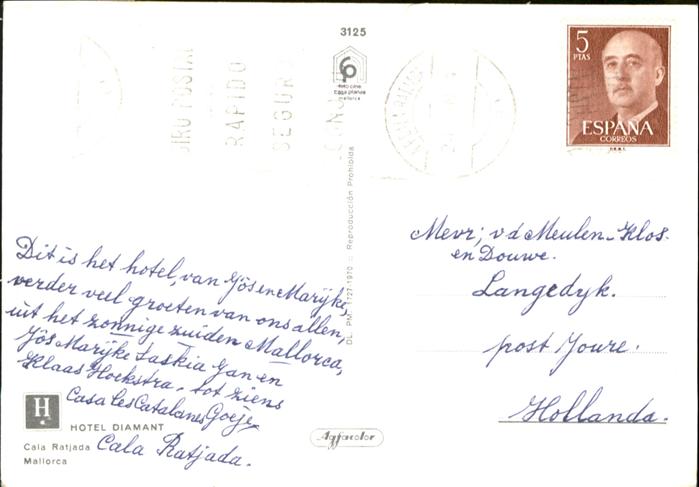 3125
foto cine
casa planas
mallorca
GIRO POSTAL
RAPIDO
SEGURO
5
PTAS
ESPAÑA
CORREOS
DL. PM. 1227-1970 - Reproducción Prohibida
Dit is het hotel, van Jös en Marijke,
verder veel groeten van ons allen,
uit het zonnige zuiden Mallorca,
Jös Marijke Saskia Jan en
Klaas Hoekstra. tot ziens
Casa Les Catalanes Goeje
Cala Ratjada.
H
HOTEL DIAMANT
Cala Ratjada
Mallorca
Agfacolor
Mevr; v d Meulen-Klos.
en Douwe.
Langedyk.
post Joure.
Hollanda.